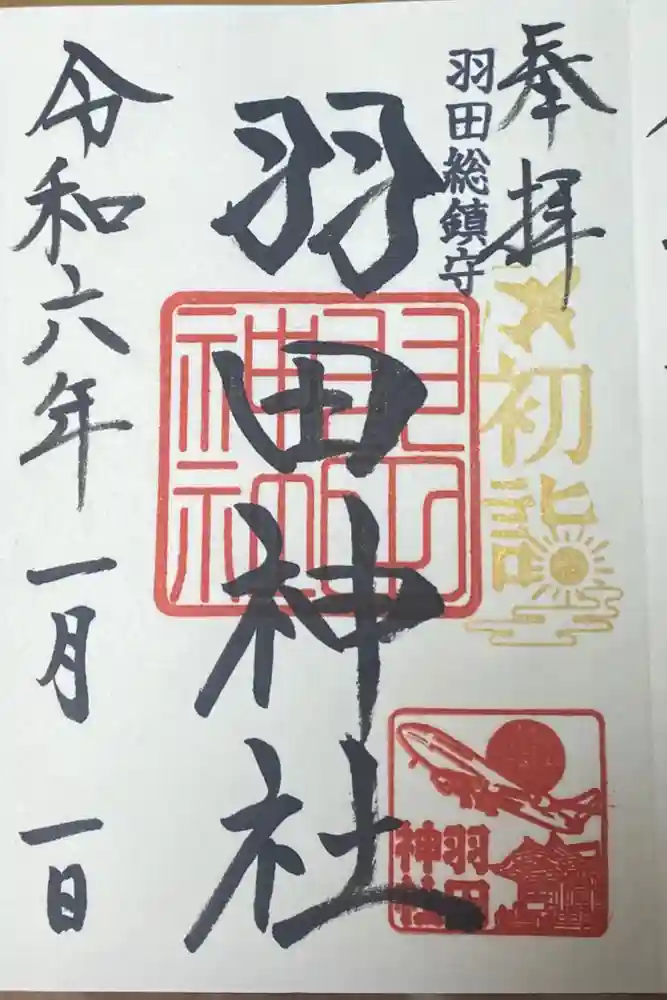 奉拝
羽田総鎮守
初詣
羽田神社
羽田神社
羽田
神社
令和六年 一月 一日